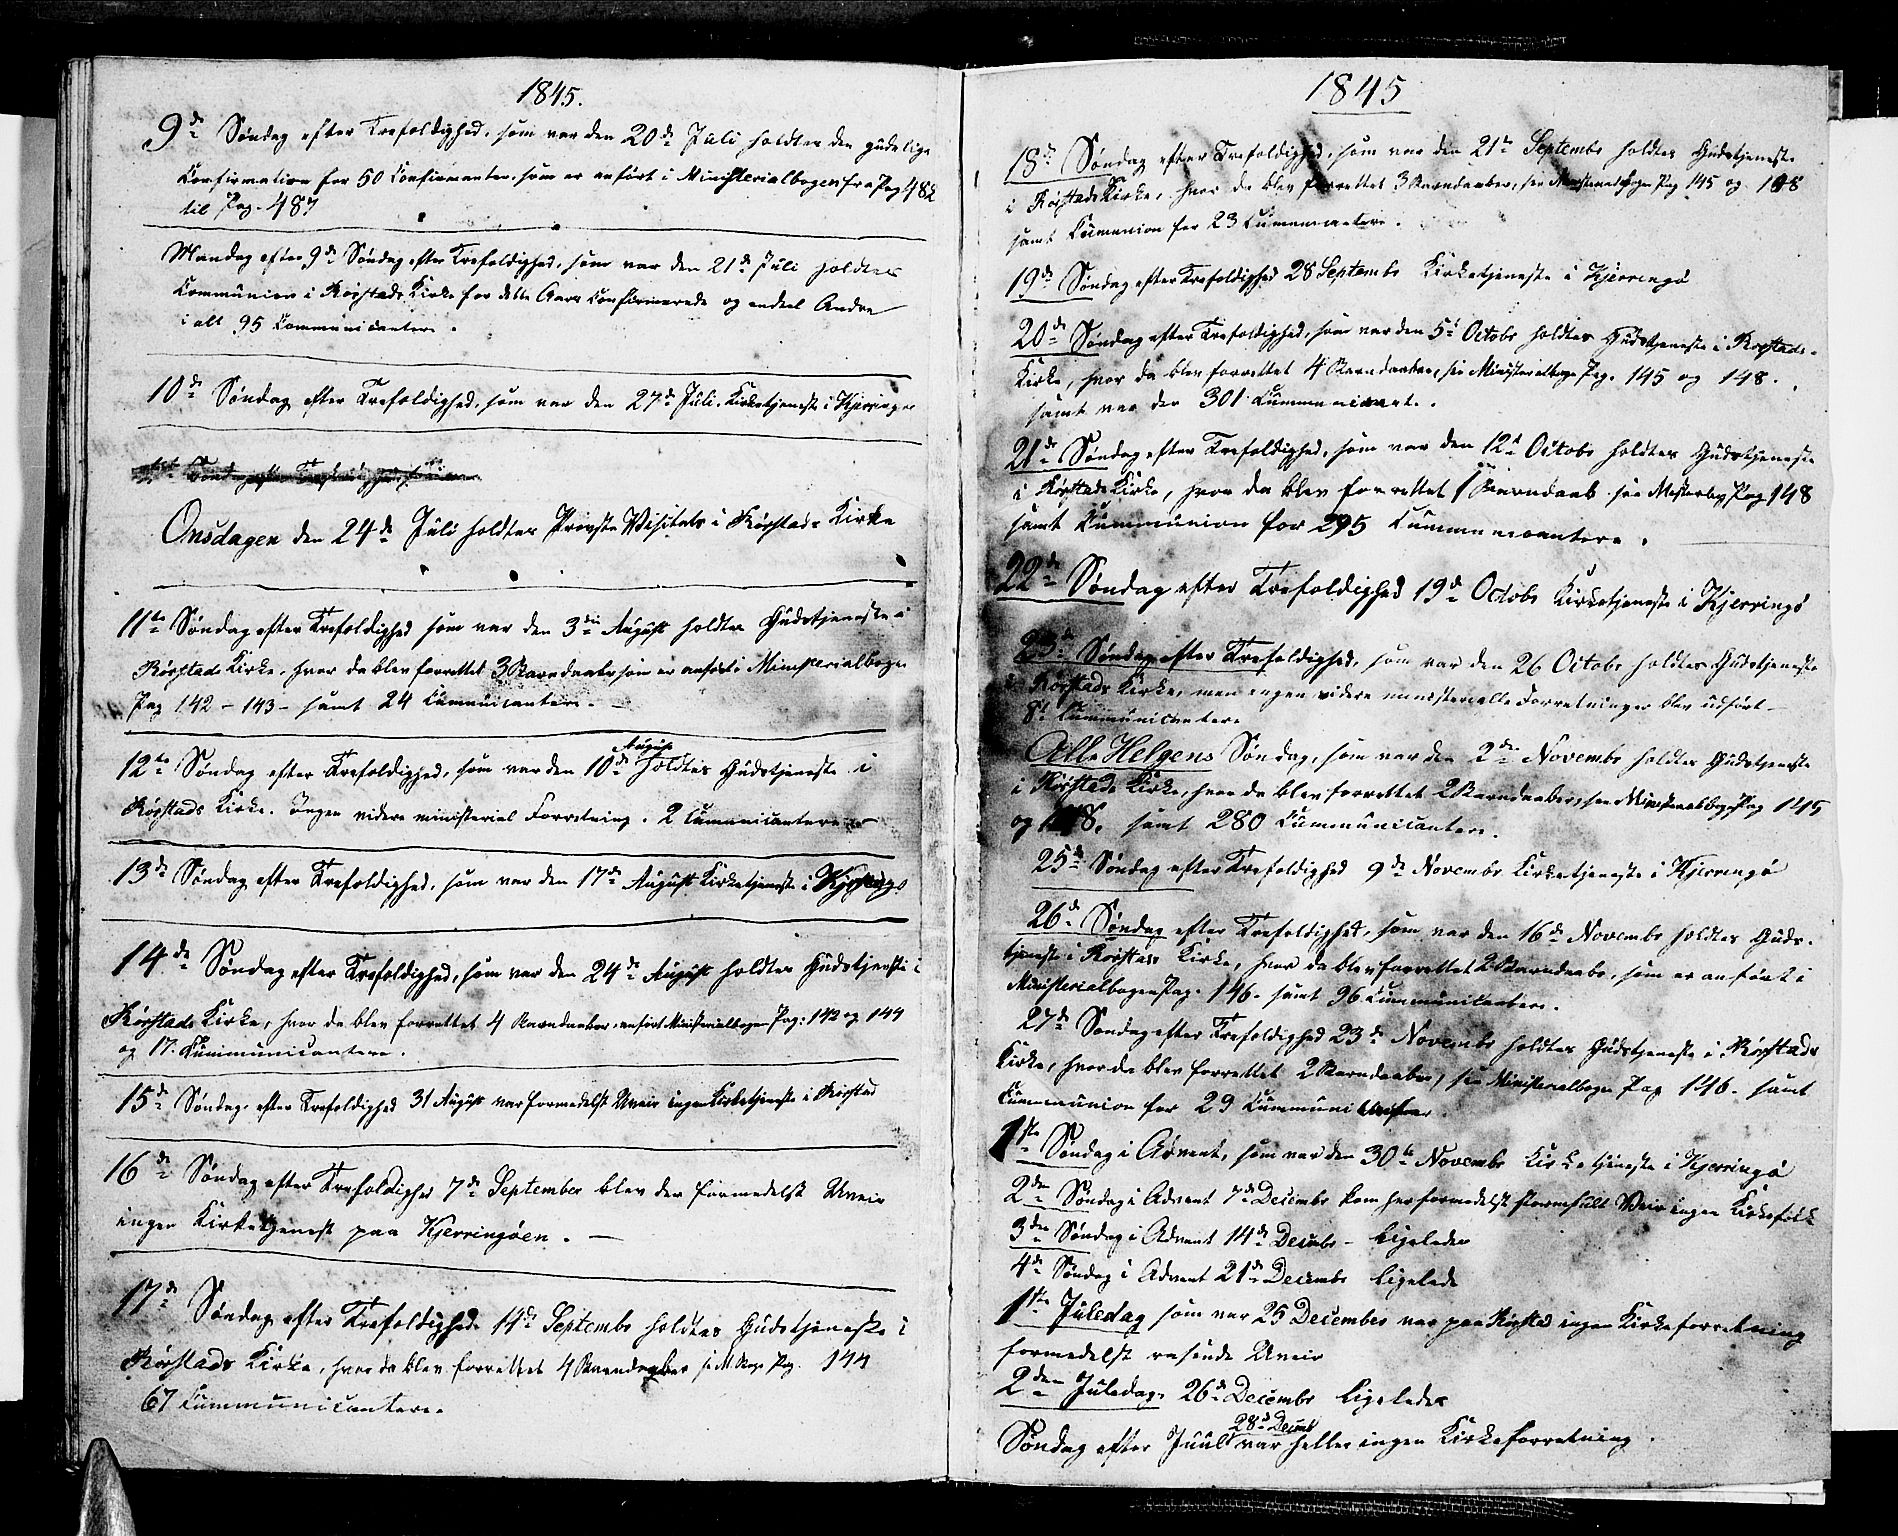 1845.
9de Søndag efter Trefoldighed, som var den 20de Juli holdtes den gudelige
Confirmation for 50 Confirmanter, som er anført i Ministerialbogen fra Pag 482
til Pag. 487
Mandag efter 9de Søndag efter Trefoldighed, som var den 21de Juli holdtes
Communion i Rørstads Kirke for dette Aars Confirmerede og endeel Andre
i alt 95 Communicantere.
10de Søndag efter Trefoldighed, som var den 27de Juli, Kirketjeneste i Kjerringø
Onsdagen den 24de Juli holdtes Provste Visitats i Rørstads Kirke
11te Søndag efter Trefoldighed som var den 3die August holdtes Gudstjeneste i
Rørstads Kirke, hvor da blev forrettet 3 Barndaabe som er anført i Ministerialbogen
Pag 142 - 143 - samt 24 Cumunicantere. —
12te Søndag efter Trefoldighed, som var den 10de August holdtes Gudstjeneste i
Rørstads Kirke. Ingen videre ministerial Forretning. 2 Cumunicantere
13de Søndag efter Trefoldighed, som var den 17de August Kirketjeneste i Kjerringø
14de Søndag efter Trefoldighed, som var den 24de August holdtes Gudstjeneste i
Rørstads Kirke, hvor da blev forrettet 4 Barndaaber, anført Ministerialbogen Pag: 142 og 144
og 17. Cummunicantere.
15de Søndag efter Trefoldighed 31 August var formedelst Uveir ingen Kirketjeneste i Rørstad
16de Søndag efter Trefoldighed 7de September blev der formedelst Uveir
ingen Kirketjenest paa Kjerringøen. —
17de Søndag efter Trefoldighed 14de Septembr holdtes Gudstjeneste i
Rørstads Kirke, hvor da blev forrettet 4 Barndaaber se M. Bog Pag. 144
67 Cummunicantere.
1845
18de Søndag efter Trefoldighed, som var den 21de Septembr holdtes Gudstjeneste
i Rørstads Kirke, hvor da blev forrettet 3 Barndaaber, see Ministerialbogen Pag 145 og 148
samt Cumunion for 23 Cumunicantere.
19de Søndag efter Trefoldighed 28 Septembr Kirketjeneste i Kjerringø
20de Søndag efter Trefoldighed, som var den 5te Octobr holdtes Gudstjeneste i Rørstads
Kirke, hvor da blev forrettet 4 Barndaaber, see Ministerialbogen Pag. 145 og 148.
samt var der 301 Cummunicant.
21de Søndag efter Trefoldighed, som var den 12te Octobr holdtes Gudstjeneste
i Rørstads Kirke, hvor da blev forrettet 1 Barndaab see Pag 148
samt Cummunion for 295 Cummunicantere.
22de Søndag efter Trefoldighed 19de Octobr Kirketjeneste i Kjerringø
23de Søndag efter Trefoldighed, som var den 26 Octobr holdtes Gudstjeneste
i Rørstads Kirke, men ingen videre ministerielle Forretninger blev udført—
8te Cummunicantere
Alle Helgens Søndag, som var den 2den Novembr holdtes Gudstjeneste
i Rørstads Kirke, hvor da blev forrettet 2 Barndaaber, see Ministerialbog Pag 145
og 148. samt 280 Cummunicantere.
25de Søndag efter Trefoldighed 9de Novembr Kirketjeneste i Kjerringø
26de Søndag efter Trefoldighed, som var den 16de Novembr holdtes Guds-
tjeneste i Rørstads Kirke, hvor da blev forrettet 2 Barndaabe, som er anført i
Ministerialbogen Pag. 146. samt 96 Cummunicantere.
27de Søndag efter Trefoldighed 23de Novembr holdtes Gudstjeneste i Rørstads
Kirke, hvor da blev forrettet 2 Barndaaber, see Ministerialbogen Pag 146. samt
Cummunion for 29 Cummunicantere.
1ste Søndag i Advent, som var den 30te Novembr Kirketjeneste i Kjerringø
2den Søndag i Advent 7de Decembr kom her formedelst stormfuldt Veir ingen Kirkefolk
3die Søndag i Advent 14de Decembr - Ligeledes
4de Søndag i Advent 21de Decembr Ligelede
1ste Juledag som var 25 December var paa Rørstad ingen Kirkeforretning
formedelst rasende Uveir
2den Juledag. 26de Decembr Ligeledes
Søndag efter Juul 28de Decembr var heller ingen Kirkeforretning.